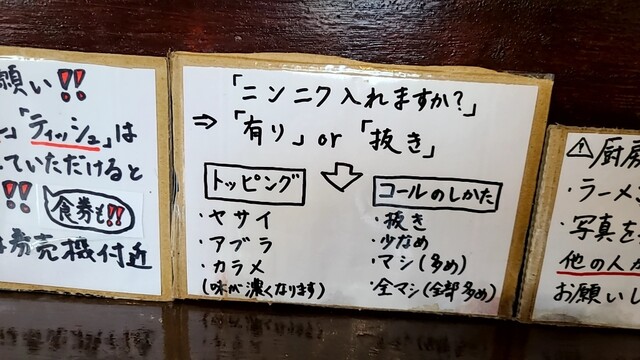 願い!!
「ティッシュ」は
ていただけると
!!
食券も!!
券売機付近
「ニンニク入れますか?」
⇒「有り」or「抜き」
トッピング
・ヤサイ
・アブラ
・カラメ
(味が濃くなります)
コールのしかた
・抜き
・少なめ
・マシ(多め)
・全マシ(全部多め)
⚠厨房
・ラーメ
・写真を
他の人が
お願いし